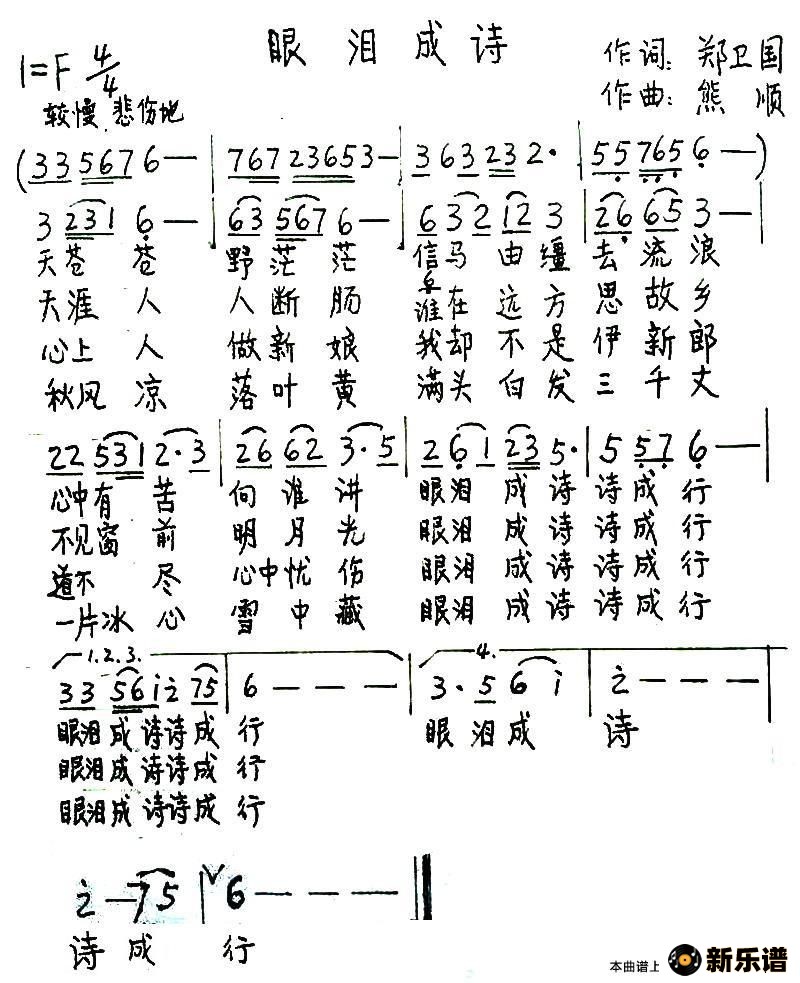 眼泪成诗
1=F 4/4
作词：郑卫国
较慢 悲伤地
作曲：熊顺
(33 5567 6— | 767 23653— | 3 63 23 2· | 55 7656 —)
3 231 6 — | 63 567 6 — | 6 32 12 3 | 26 65 3 —
天苍 苍 野茫 茫 信马 由缰 去流浪
天涯 人 人断 肠 谁在 远方 思故乡
心上 人 做新 娘 我却 不是 伊新郎
秋风 凉 落叶 黄 满头 白发 三千丈
22 531 2·3 | 26 62 3·5 | 2 61 23 5· | 5 57 6 —
心中有 苦 向谁 讲 眼泪 成诗 诗成 行
不见窗 前 明月 光 眼泪 成诗 诗成 行
道不 尽 心中忧 伤 眼泪 成诗 诗成 行
一片冰 心 雪中 藏 眼泪 成诗 诗成 行
1.2.3. 4.
33 56i 2 75 | 6 — — — | 3·5 6 i | 2 — — —
眼泪成诗诗成 行 眼泪成 诗
眼泪成诗诗成 行
眼泪成诗诗成 行
2 — 75 | V6 — — — ‖
诗 成 行
本曲谱上 新乐谱